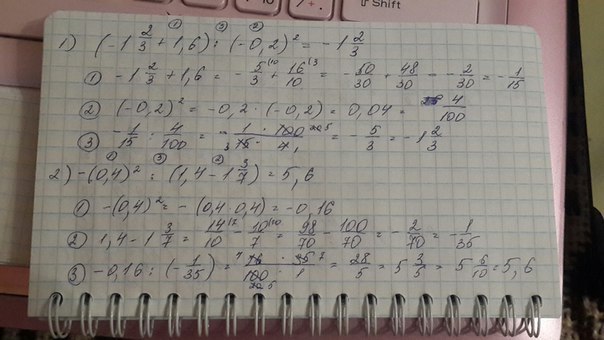 Shift
① ③ ②
1) (-1 2/3 + 1,6) : (-0,2)² = -1 2/3
① -1 2/3 + 1,6 = -5/3 (10 + 16/10 (3 = -50/30 + 48/30 = -2/30 = -1/15
② (-0,2)² = -0,2 · (-0,2) = 0,04 = 4/100
③ -1/15 : 4/100 = -1/15 · 100/4 = -5/3 = -1 2/3
① ③ ②
2) -(0,4)² : (1,4 - 1 3/7) = 5,6
① -(0,4)² = -(0,4·0,4) = -0,16
② 1,4 - 1 3/7 = 14/10 (7 - 10/7 (10 = 98/70 - 100/70 = -2/70 = -1/35
③ -0,16 : (-1/35) = 16 · 35 / 100 · 1 = 28/5 = 5 3/5 = 5 6/10 = 5,6